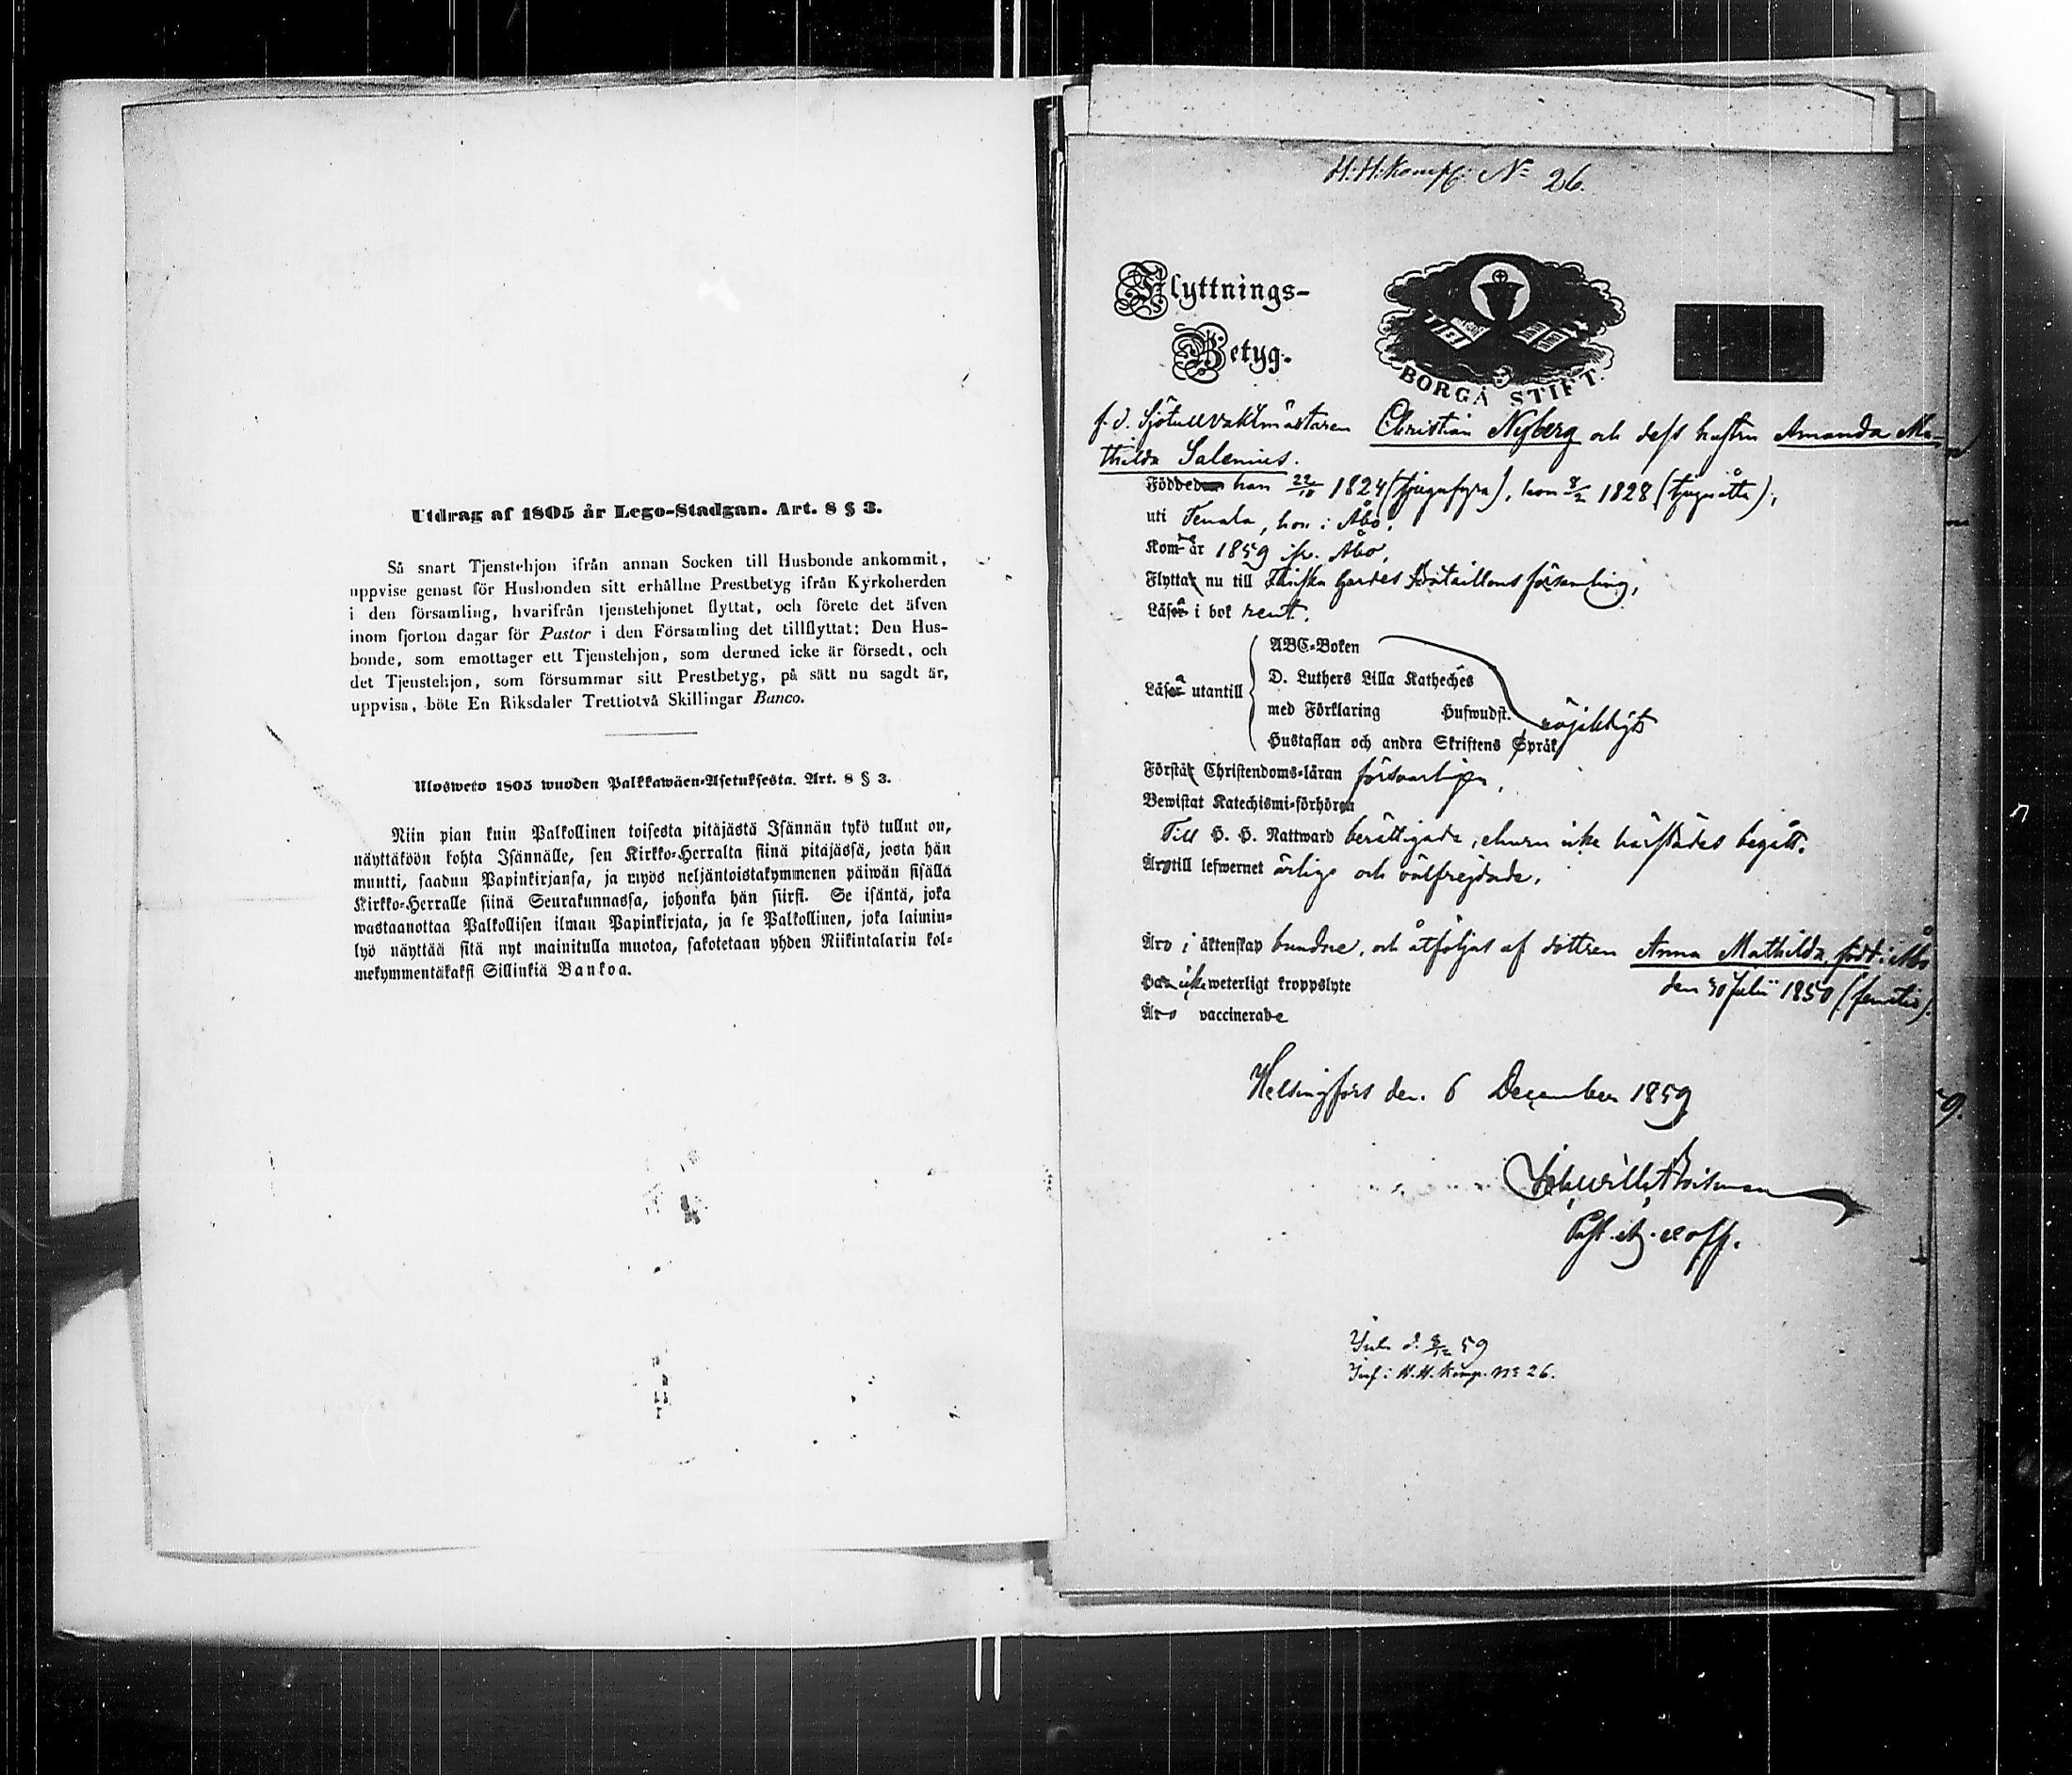 Utdrag af 1805 år Lego-Stadgan. Art. 8 § 3.
Så snart Tjenstehjon ifrån annan Socken till Husbonde ankommit,
uppvise genast för Husbonden sitt erhållne Prestbetyg ifrån Kyrkoherden
i den församling, hvarifrån tjenstehjonet flyttat, och förete det äfven
inom fjorton dagar för Pastor i den Församling det tillflyttat: Den Hus-
bonde, som emottager ett Tjenstehjon, som dermed icke är försedt, och
det Tjenstehjon, som försummar sitt Prestbetyg, på sätt nu sagdt är,
uppvisa, böte En Riksdaler Trettiotvå Skillingar Banco.
Ulosweto 1805 wuoden Palkkawäen-Asetuksesta. Art. 8 § 3.
Niin pian kuin Palkollinen toisesta pitäjästä Isännän tykö tullut on,
näyttäköön kohta Isännälle, sen Kirkko-Herralta siinä pitäjässä, josta hän
muutti, saadun Papinkirjansa, ja myös neljäntoistakymmenen päiwän sisällä
Kirkko-Herralle siinä Seurakunnassa, johonka hän siirsi. Se isäntä, joka
wastaanottaa Palkollisen ilman Papinkirjata, ja se Palkollinen, joka laimin-
lyö näyttää sitä nyt mainitulla muotoa, sakotetaan yhden Riikintalarin kol-
mekymmentäkaksi Sillinkiä Bankoa.
H.H.Komp. No 26.
Flyttnings-
Betyg.
BORGÅ STIFT.
f.d. Sjötullvaktmästaren Christian Nyberg och dess hustru Amanda Ma-
thilda Salenius.
Födde han 22/10 1824 (tjugufyra), hon 8/2 1828 (tjuguåtta),
uti Tenala, hon i Åbo,
Kom år 1859 ifr. Åbo,
Flytta nu till Finska Gardes Bataillons församling,
Läsa i bok rent.
Läsa utantill
ABC-Boken
D. Luthers Lilla Katheches
med Förklaring Hufwudst.
Hustaflan och andra Skriftens Språk nöjaktigt
Förstå Christendoms-läran försvarligen,
Bewistat Katechismi-förhören
Till H. H. Nattward berättigade, ehuru icke härstädes begått.
Äro till lefwernet ärliga och välfrejdade,
Äro i äktenskap bundne, och åtföljas af dottren Anna Mathilda, född i Åbo
den 30 Julii 1850 (femtio).
Hava icke weterligt kroppslyte
Äro vaccinerade
Helsingfors den 6 December 1859
Past. adj. ex off.
Inl. d. 8/12 59
Inf. i H.H. Komp. No 26.